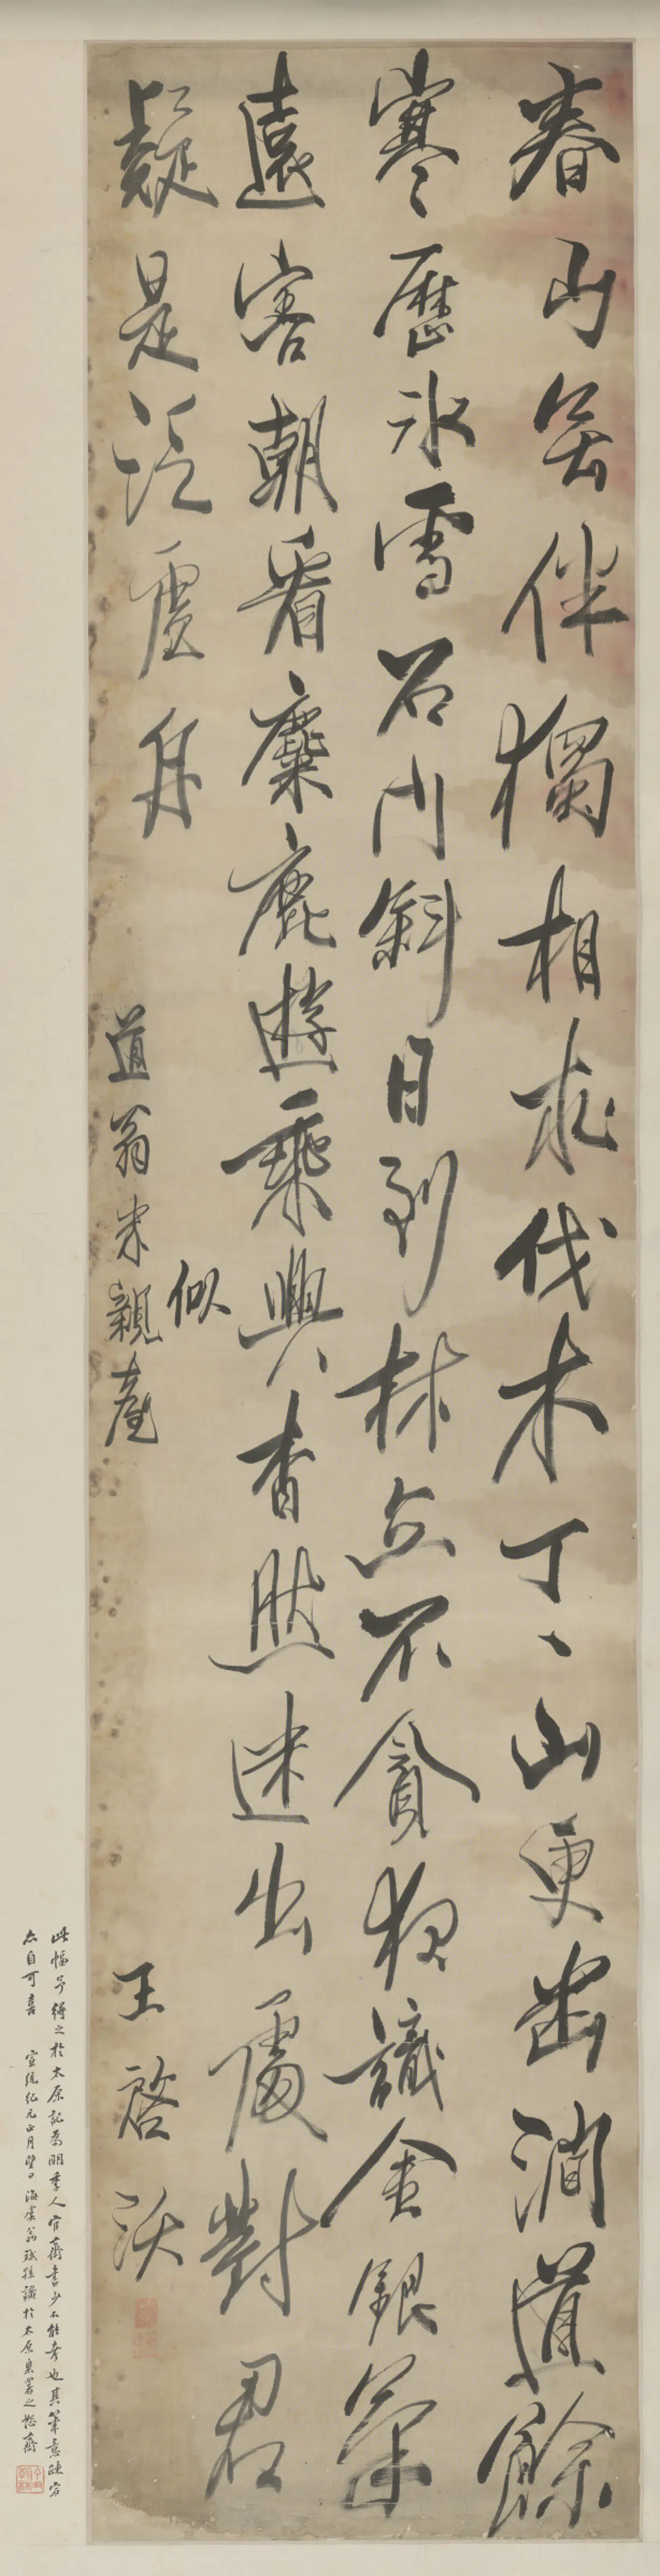 春山无伴獨相求伐木丁丶山更幽澗道餘
寒歷冰雪石門斜日到林丘不貪夜識金銀氣
遠害朝看麋鹿遊乘興杳然迷出處對君
疑是泛虛舟
似
道翁米親臺
王啓沃
此幅予得之於太原記為明季人官齋書少不能考也其筆意疏宕
亦自可喜 宣統紀元正月望日 海虞翁斌孫識於太原臬署之慤齋